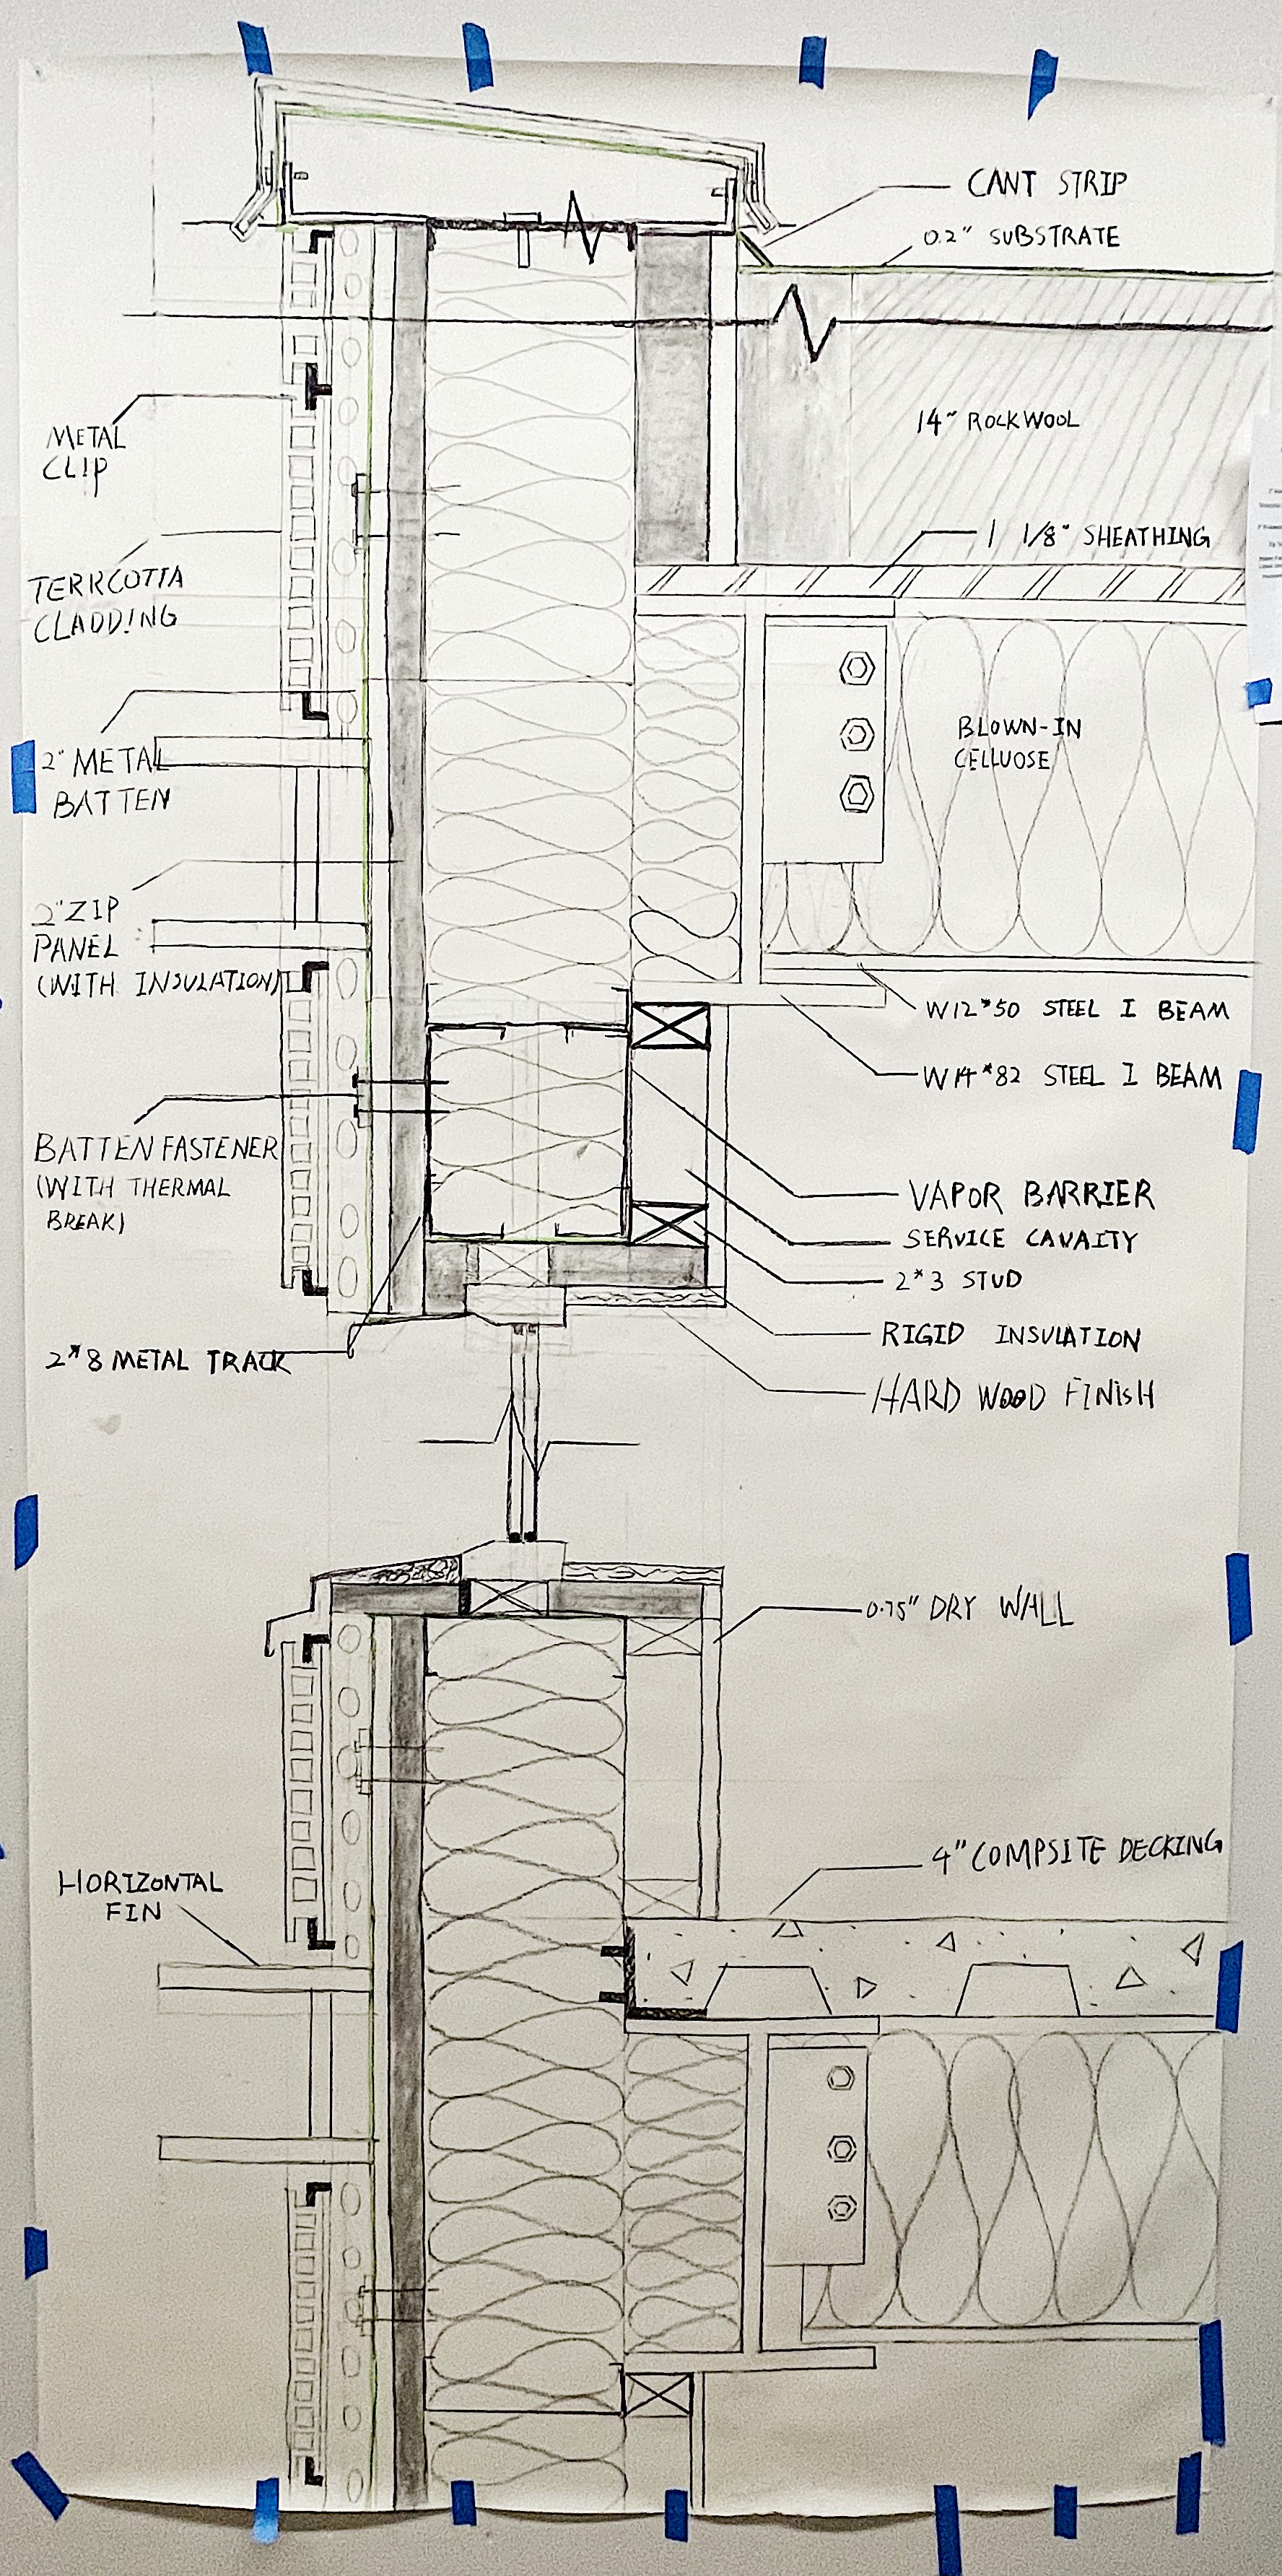 CANT STRIP
0.2" SUBSTRATE
METAL
CLIP
14" ROCKWOOL
1 1/8" SHEATHING
TERRCOTTA
CLADDING
BLOWN-IN
CELLUOSE
2" METAL
BATTEN
2" ZIP
PANEL
(WITH INSULATION)
W12*50 STEEL I BEAM
W14*82 STEEL I BEAM
BATTEN FASTENER
(WITH THERMAL
BREAK)
VAPOR BARRIER
SERVICE CAVAITY
2*3 STUD
RIGID INSULATION
2*8 METAL TRACK
HARD WOOD FINISH
0.75" DRY WALL
4" COMPSITE DECKING
HORIZONTAL
FIN